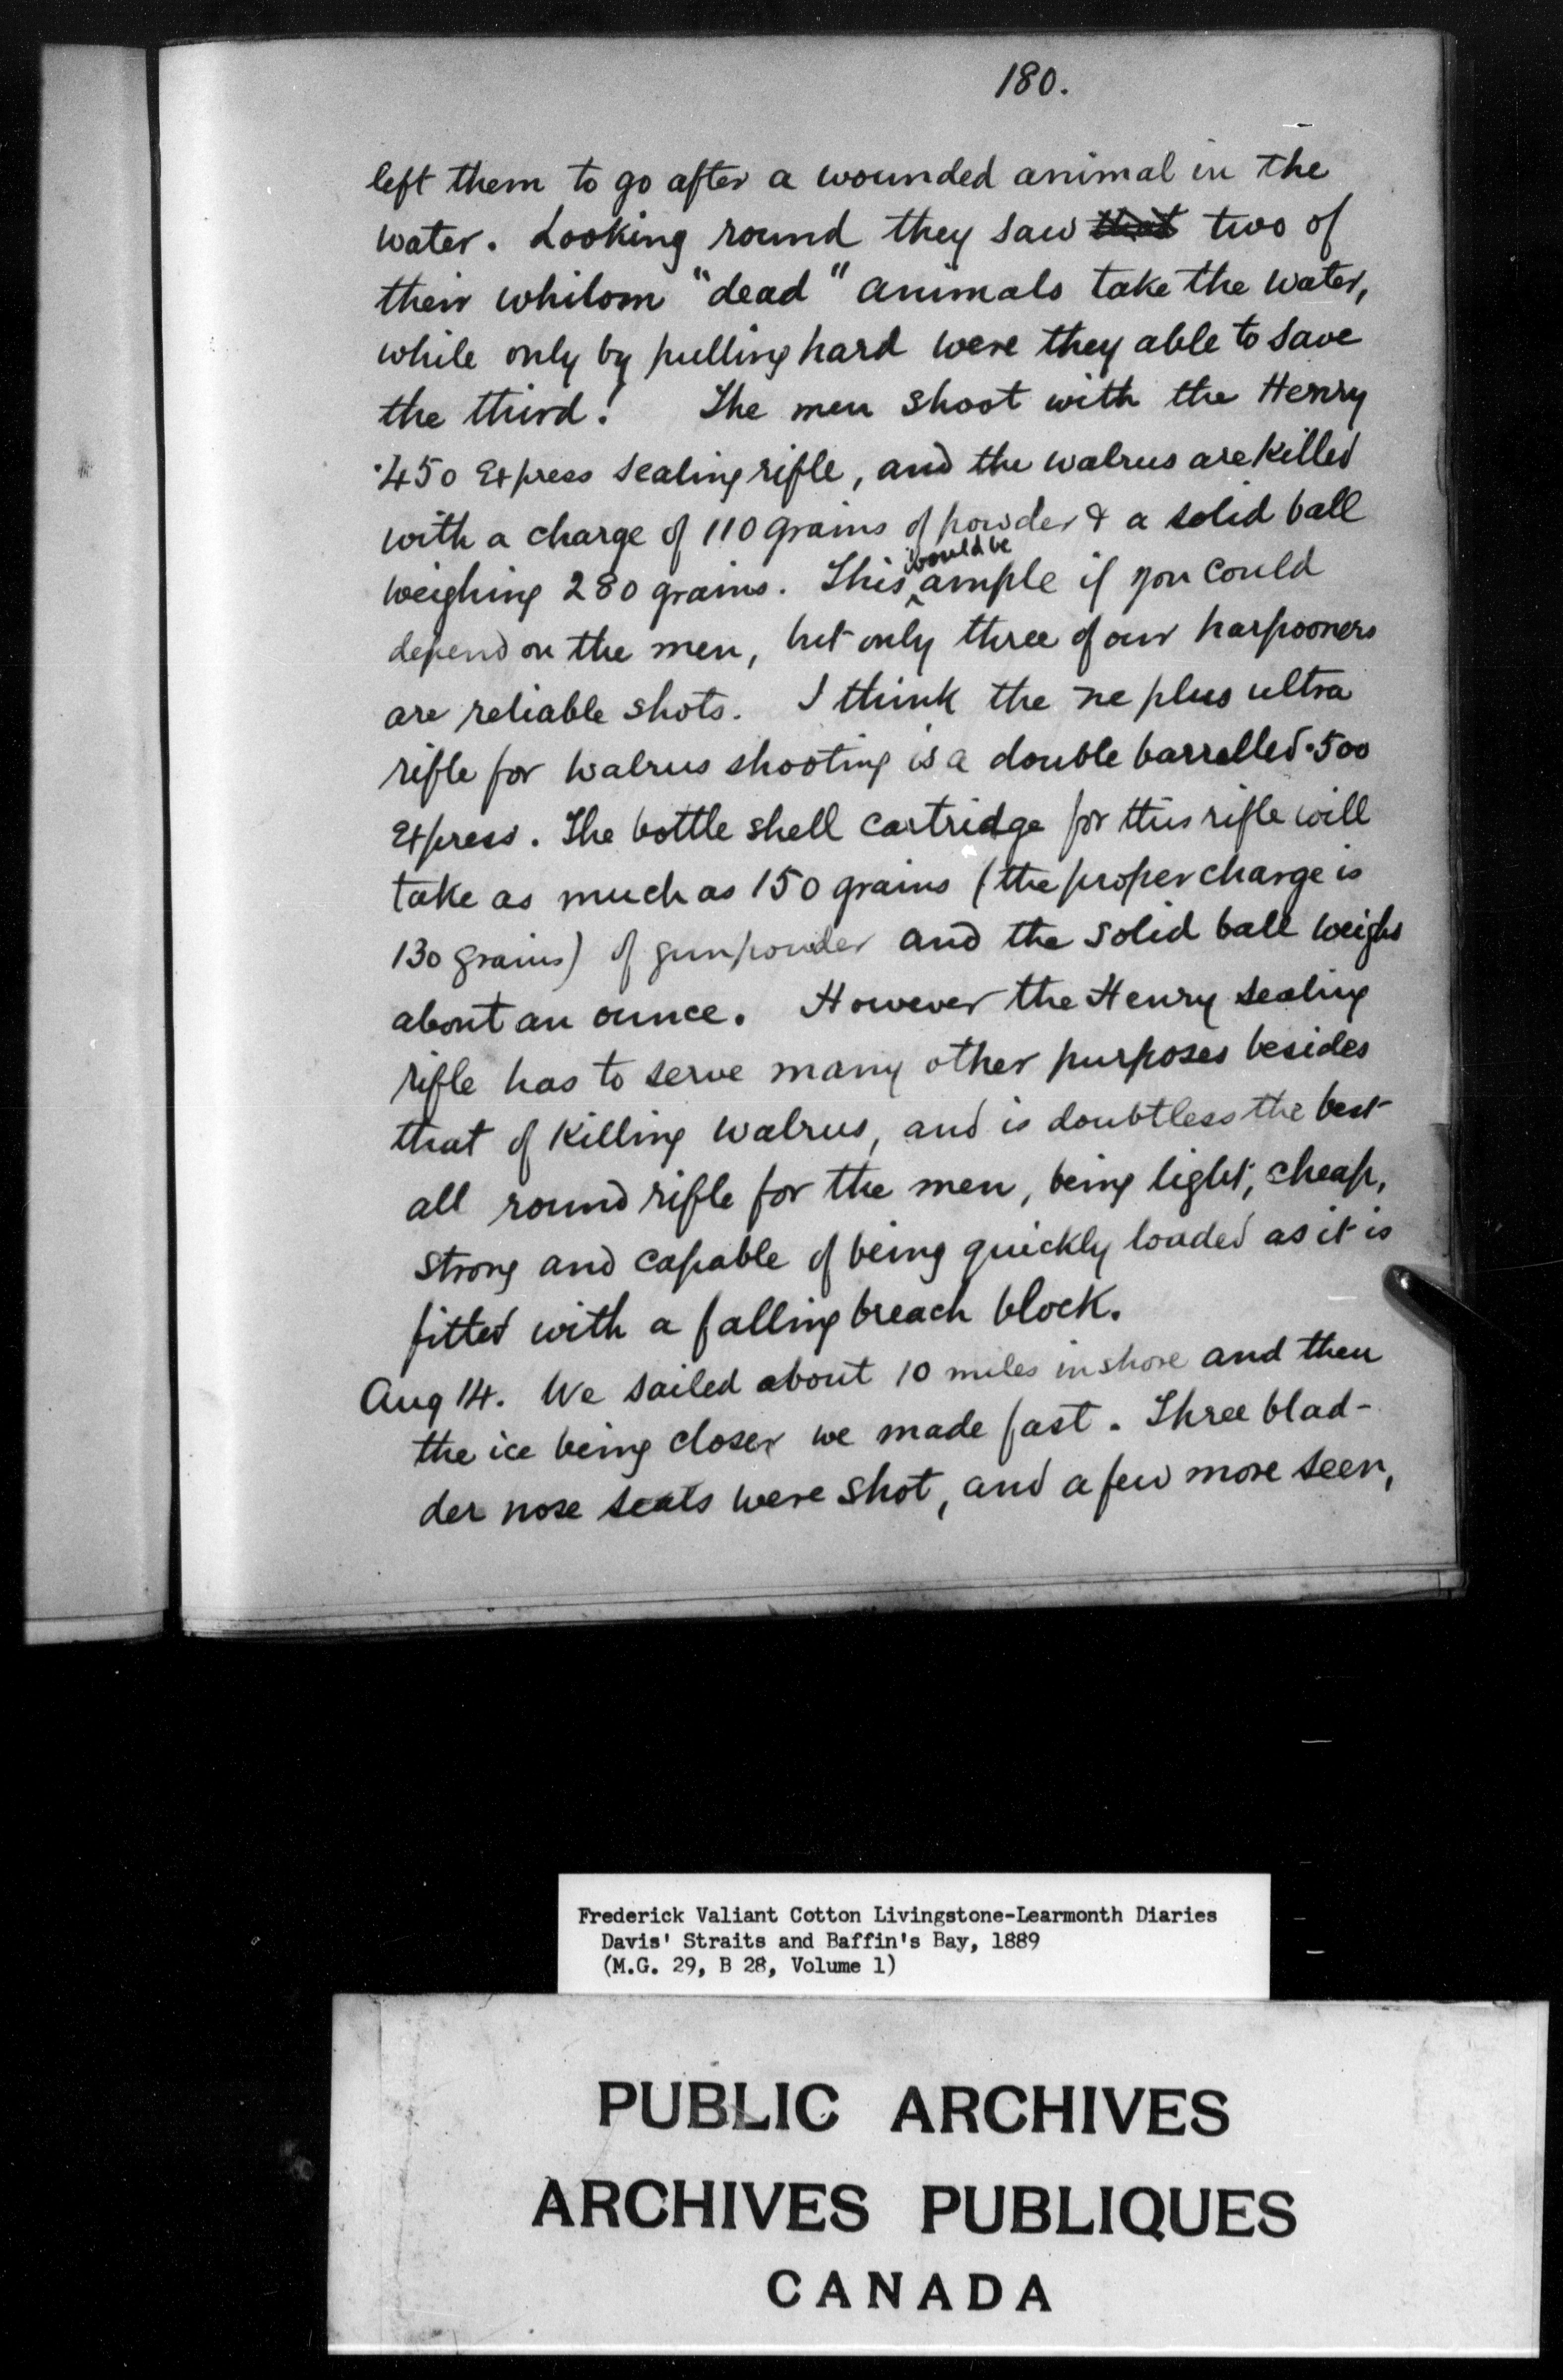 180.
left them to go after a wounded animal in the
water. Looking round they saw that two of
their whilom "dead" animals take the water,
while only by pulling hard were they able to save
the third! The men shoot with the Henry
·450 Express sealing rifle, and the walrus are killed
with a charge of 110 grains of powder & a solid ball
would be
weighing 280 grains. This ^ ample if you could
depend on the men, but only three of our harpooners
are reliable shots. I think the ne plus ultra
rifle for walrus shooting is a double barrelled ·500
Express. The bottle shell cartridge for this rifle will
take as much as 150 grains (the proper charge is
130 grains) of gunpowder and the solid ball weighs
about an ounce. However the Henry sealing
rifle has to serve many other purposes besides
that of killing walrus, and is doubtless the best
all round rifle for the men, being light, cheap,
strong and capable of being quickly loaded as it is
fitted with a falling breach block.
Aug 14. We sailed about 10 miles inshore and then
the ice being closer we made fast. Three blad-
der nose seals were shot, and a few more seen,
Frederick Valiant Cotton Livingstone-Learmonth Diaries
Davis' Straits and Baffin's Bay, 1889
(M.G. 29, B 28, Volume 1)
PUBLIC ARCHIVES
ARCHIVES PUBLIQUES
CANADA